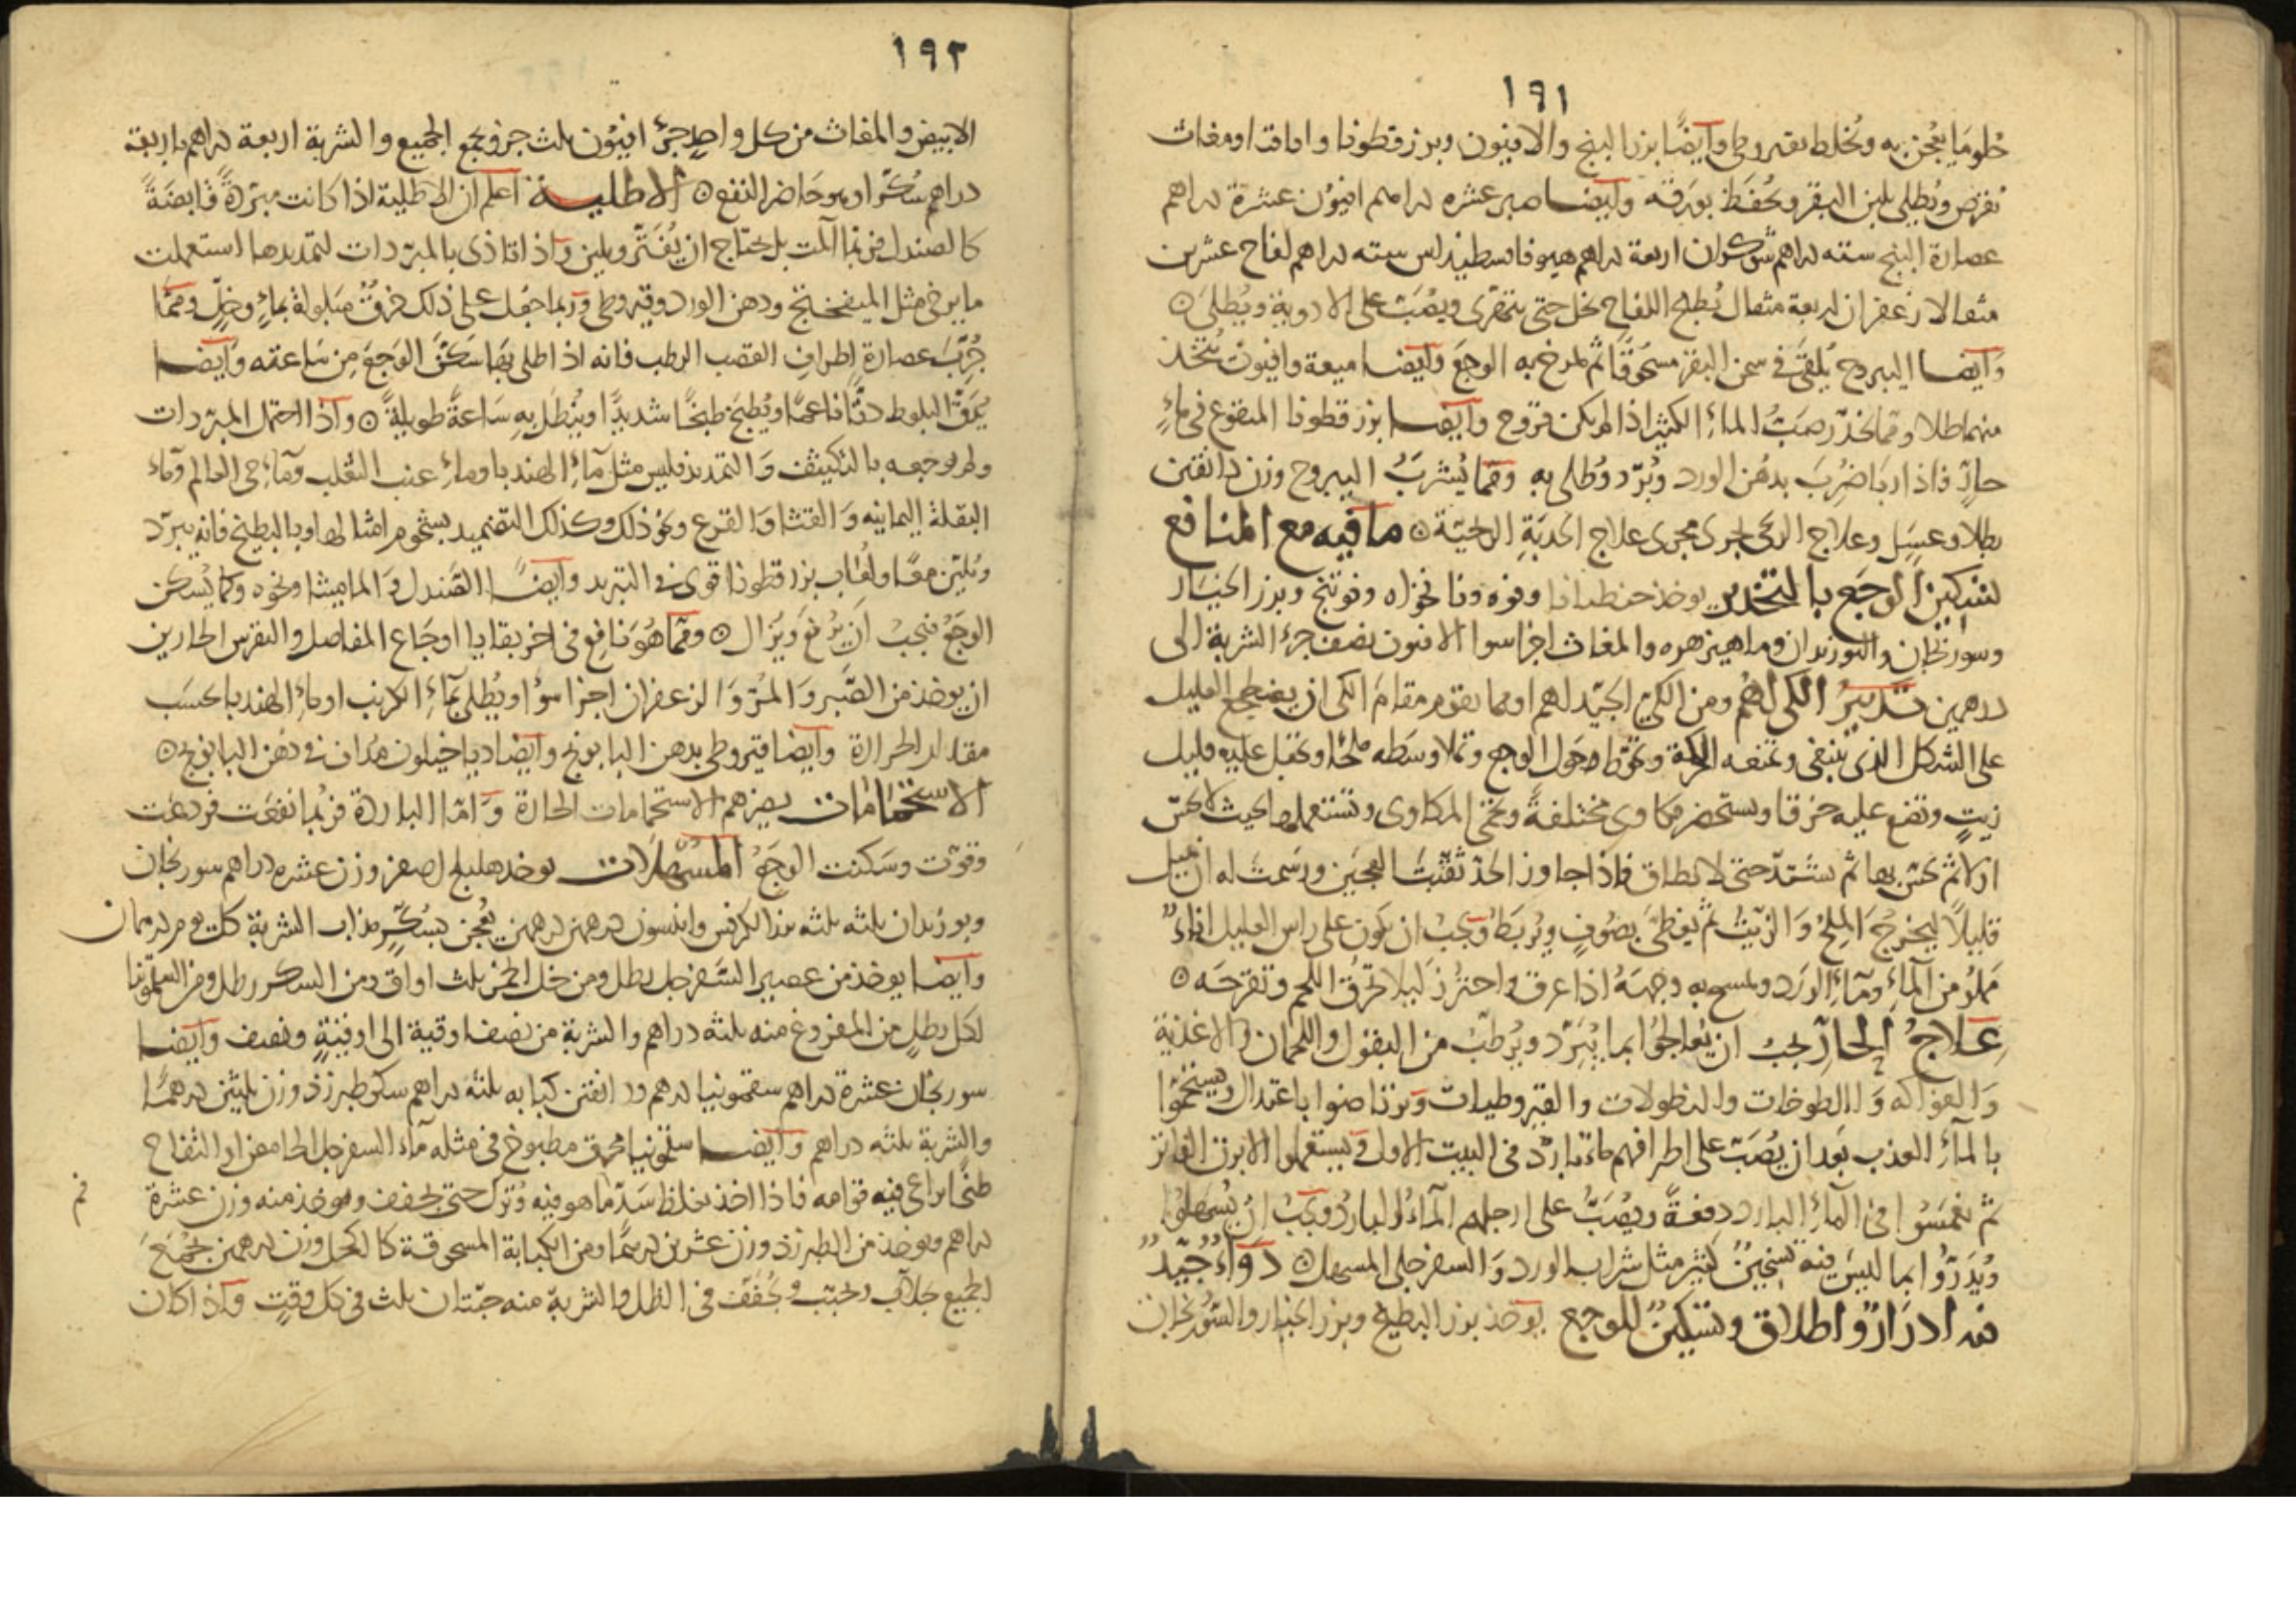 ١٩١
حلو ما يعجن به ويخلط بقيروطى وآيضًا بزر البنج والافيون وبزر قطونا واقاقيا ومغاث
يقرص ويطلى بلبن البقر ويحفظ بورقه وآيضا صبر عشره دراهم افيون عشرة دراهم
عصارة البنج سته دراهم شوكران اربعة دراهم هيوفاقسطيداس سته دراهم لفاح عشرين
مثقالا زعفران اربعة مثقال يُطبخ اللفاح بخل حتى يتهرّى ويصب على الادوية ويُطلى ۞
وآيضا اليبروح يُلقى فى سمن البقر مسحوقًا ثم يمرخ به الوجع وآيضا ميعة وافيون يتخذ
منهما طلا ومما يخدّر صبّ الماء الكثير اذا لم يكن قروح وآيضا بزر قطونا المنقوع فى ماءٍ
حارّ فاذا ربا ضُرِبَ بدهن الورد وبُرّد وطُلى به ومما يُشربُ اليبروح وزن دانقين
بطلا وعسل وعلاج الركبى يجرى مجرى علاج الحدبة الريحيّة ۞ ما فيه مع المنافع
تسكين الوجع بالتخدير يوخذ جنطيانا وفوه ونانخواه وفوتنج وبزر الخيار
وسورنجان والبوزيدان وماهيزهره والمغاث اجزا سوا الافيون نصف جزء الشربة الى
درهمين تدبيرُ الكى لهُم ومن الكىّ الجيّد لهم او مما يقوم مقام الكى ان يضطجع العليل
على الشكل الذى ينبغى وتمنعه الحركة وتحوّط حول الوجع وتملا وسطه ملحًا وتجعل عليه قليل
زيتٍ وتضع عليه خرقا وتستحضر مكاوى مختلفةً وتحمى المكاوى وتستعملها بحيث لا يحسّ
اولا ثم يحسّ بها ثم يشتدّ حتى لا يطاق فاذا جاوز الحدّ ثقّبتَ العجين ورسمتَ له ان يميل
قليلاً ليخرجَ الملحُ والزيتُ ثم يغطّى بصُوفٍ ويُربَط ويجبُ ان يكون على راس العليل اناءٌ
مملوٌ من الماءِ وماءِ الورد ويمسح به وجهَهُ اذا عرق واحترز ليلا تحرق اللحم وتقرحه ۞
عِلاجُ الحارّ يجبُ ان يُعالجُوا بما يُبَرّد ويُرطّب من البقول واللحمان والاغذية
والفواكه والطوخات والنطولات والقيروطيات ويرتاضوا باعتدال ويستحمّوا
بالماء العذب بعد ان يُصَبّ على اطرافهم ماء بارد فى البيت الاول ويستعملوا الابزن الفاتر
ثم يغمسُوا فى الماءِ البارد دفعةً ويُصَبُّ على ارجلهم الماءُ البارد ويجبُ ان يُسهَلوا
ويُدَرّوا بما ليس فيه تسخينٌ كثير مثل شراب الورد والسفرجلى المسهل ۞ دَوَاءٌ جيّدٌ
فيه ادرارٌ واطلاق وتسكينٌ للوجع يوخذ بزر البطيخ وبزر الخيار والسورنجان
١٩٢
الابيض والمغاث من كل واحد جزءٌ افيُون ثلث جزء ويجمع الجميع والشربة اربعة دراهم باربعة
دراهم سُكّر اوهو حاضر النفع ۞ الاطليـــة اعلم ان الاطلية اذا كانت مبرّدةً قابضةً
كالصندل فربّما آلمت بل يحتاج ان يُفتّر ويلين واذا تاذى بالمبرّدات لتمديدها استعملت
ما يرخى مثل الميفختج ودهن الورد وقيروطى وربما جعل على ذلك خرقٌ مبلولة بماءٍ وخلٍّ ومما
جُرّب عصارة اطراف القصب الرطب فانه اذا طلى بها سكّن الوجع من ساعته وآيضا
يُدقّ البلوط دقًّا ناعمًا ويُطبَخ طبخًا شديدًا ويُنطَل به سَاعةً طويلةً ۞ واذا احتمل المبرّدات
ولم يوجعه بالتكثيف والتمديد فليس مثل ماءِ الهندبا وماءِ عنب الثعلب وماءِ حى العالم وماء
البقلة اليمانيه والقثا والقرع ونحو ذلك وكذلك التضميد بشحوم امثالها وبالبطيخ فانه يبرّد
ويُليّن معًا ولعاب بزر قطونا قوى فى التبريد وآيضًا الصندل والماميثا ونحوه وكما يُسكن
الوجعُ فيجبُ ان يُرفع ويُزال ۞ ومما هُوَ نافع فى اخر بقايا اوجاع المفاصل والنقرس الحارين
ان يوخذ من الصّبر والمُرّ والزعفران اجزا سوٌا ويُطلى بماءِ الكرنب او ماءِ الهندبا بحسب
مقدار الحرارة وآيضا قيروطى بدهن البابونج وآيضا دياخيلون مُداف فى دهن البابونج ۞
الاستحمامات يضرهم الاستحمامات الحارة وامّا الباردة فربّما نفعت فردعت
وقوّت وسكنت الوجعُ المسهلات يوخذ هليلج اصفر وزن عشره دراهم سورنجان
وبوزيدان ثلثه ثلثه بزر الكرفس وانيسون درهمين درهمين يُعجن بسُكّرٍ مذاب الشربة كل يوم درهمان
وآيضا يوخذ من عصير السفرجل رطل ومن خل الخمر ثلث اواق ومن السكر رطل ومن السقمونيا
لكل رطلٍ من المفروغ منه ثلثه دراهم والشربة من نصف اوقية الى اوقيةٍ ونصف وآيضا
سورنجان عشرة دراهم سقمونيا درهم ودانقين كبابه ثلثه دراهم سكر طبرزذ وزن ثلثين درهمًا
والشربة ثلثه دراهم وآيضا سقمونيا محرق مطبوخ فى مثله ماء السفرجل الحامض او التفاح
طبخًا يراعى فيه قوامه فاذا اخذ يغلظ سدّ ما هو فيه وتُرك حتى يجفف ويوخذ منه وزن عشرة
دراهم ويوخذ من الطبرزذ وزن عشرين درهمًا ومن الكبابة المسحوقة كالكحل وزن درهمين يجمعَ
الجميع بجلاب ويحبّب ويُجفّف فى الظل والشربة منه حبّتان ثلث فى كل وقتٍ واذا كان